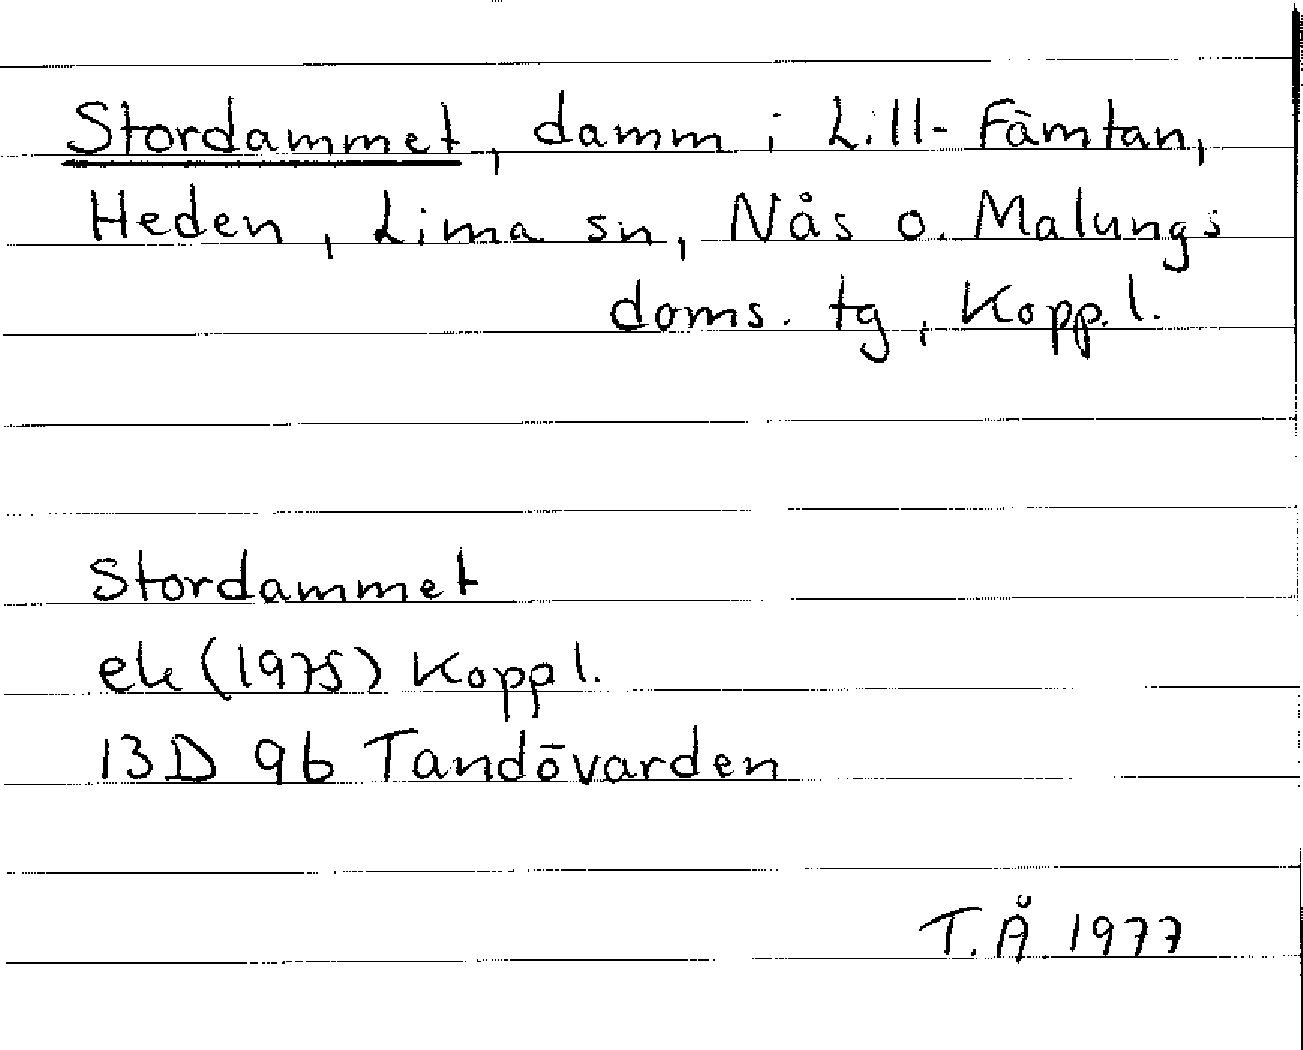 Stordammet, damm i Lill-Fämtan,
Heden, Lima sn, Nås o. Malungs
doms. tg, Kopp. l.
Stordammet
ek (1975) Kopp l.
13D 9b Tandövarden
T.Å 1977